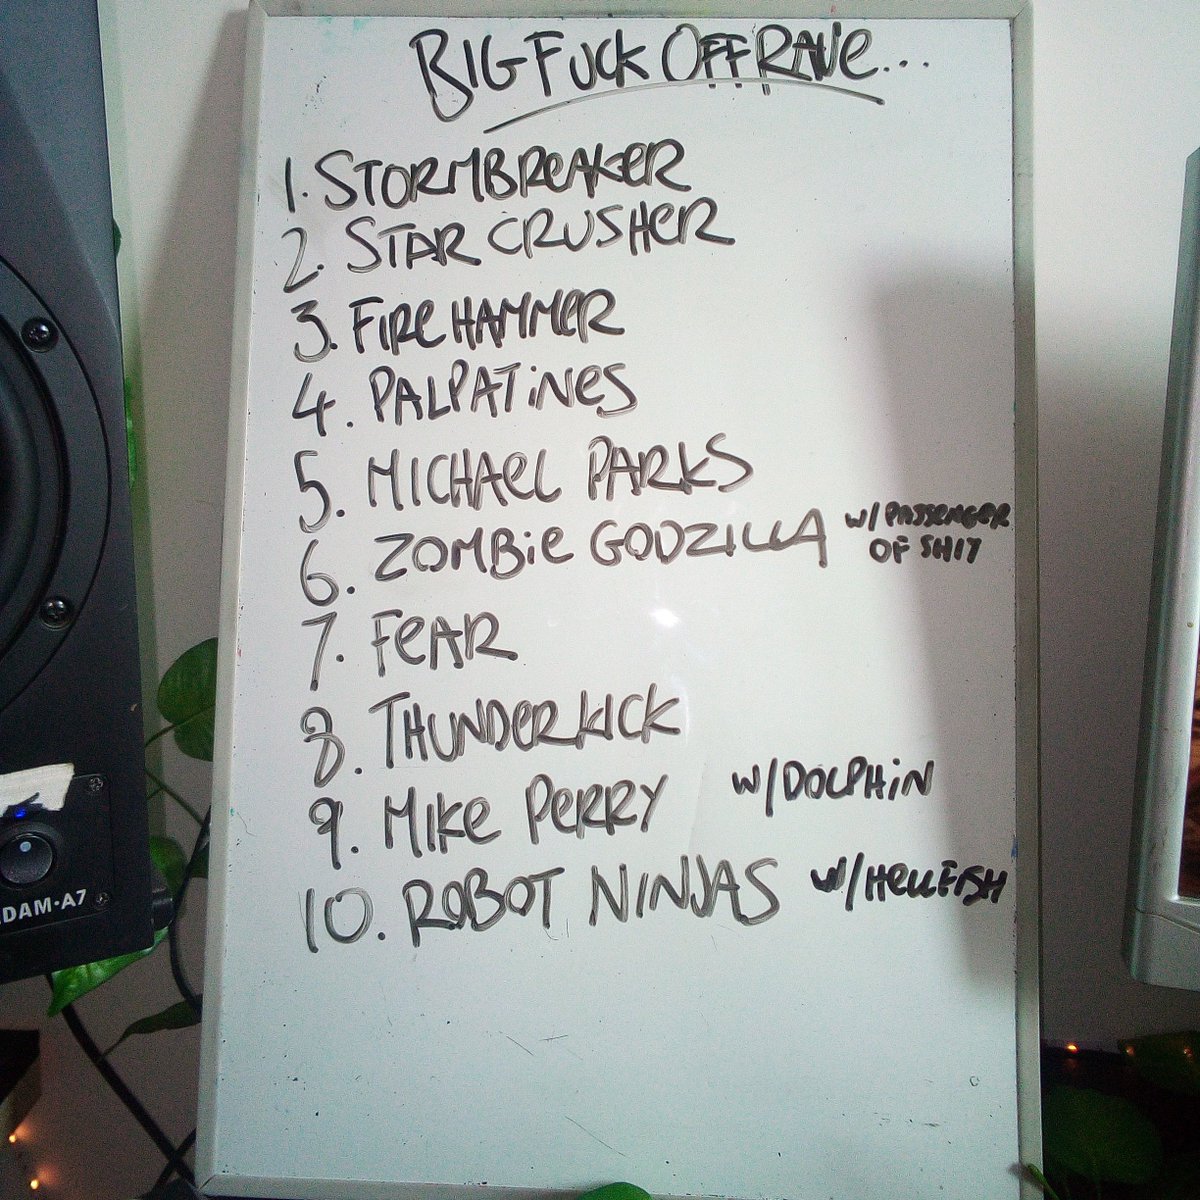 BIG FUCK OFF RAVE...
1. STORMBREAKER
2. STAR CRUSHER
3. FIREHAMMER
4. PALPATINES
5. MICHAEL PARKS
6. ZOMBIE GODZILLA w/ PASSENGER
OF SHIT
7. FEAR
8. THUNDERKICK
9. MIKE PERRY w/ DOLPHIN
10. ROBOT NINJAS w/ HELLFISH
DAM-A7